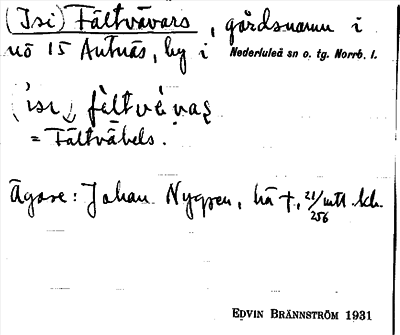 (Isi) Fältvävars, gårdsnamn i
nö 15 Antnäs, by i Nederluleå sn o. tg. Norrb. l.
= Fältväbels.
Ägare: Johan Nygren, hä †, 21/256 mtl
EDVIN BRÄNNSTRÖM 1931